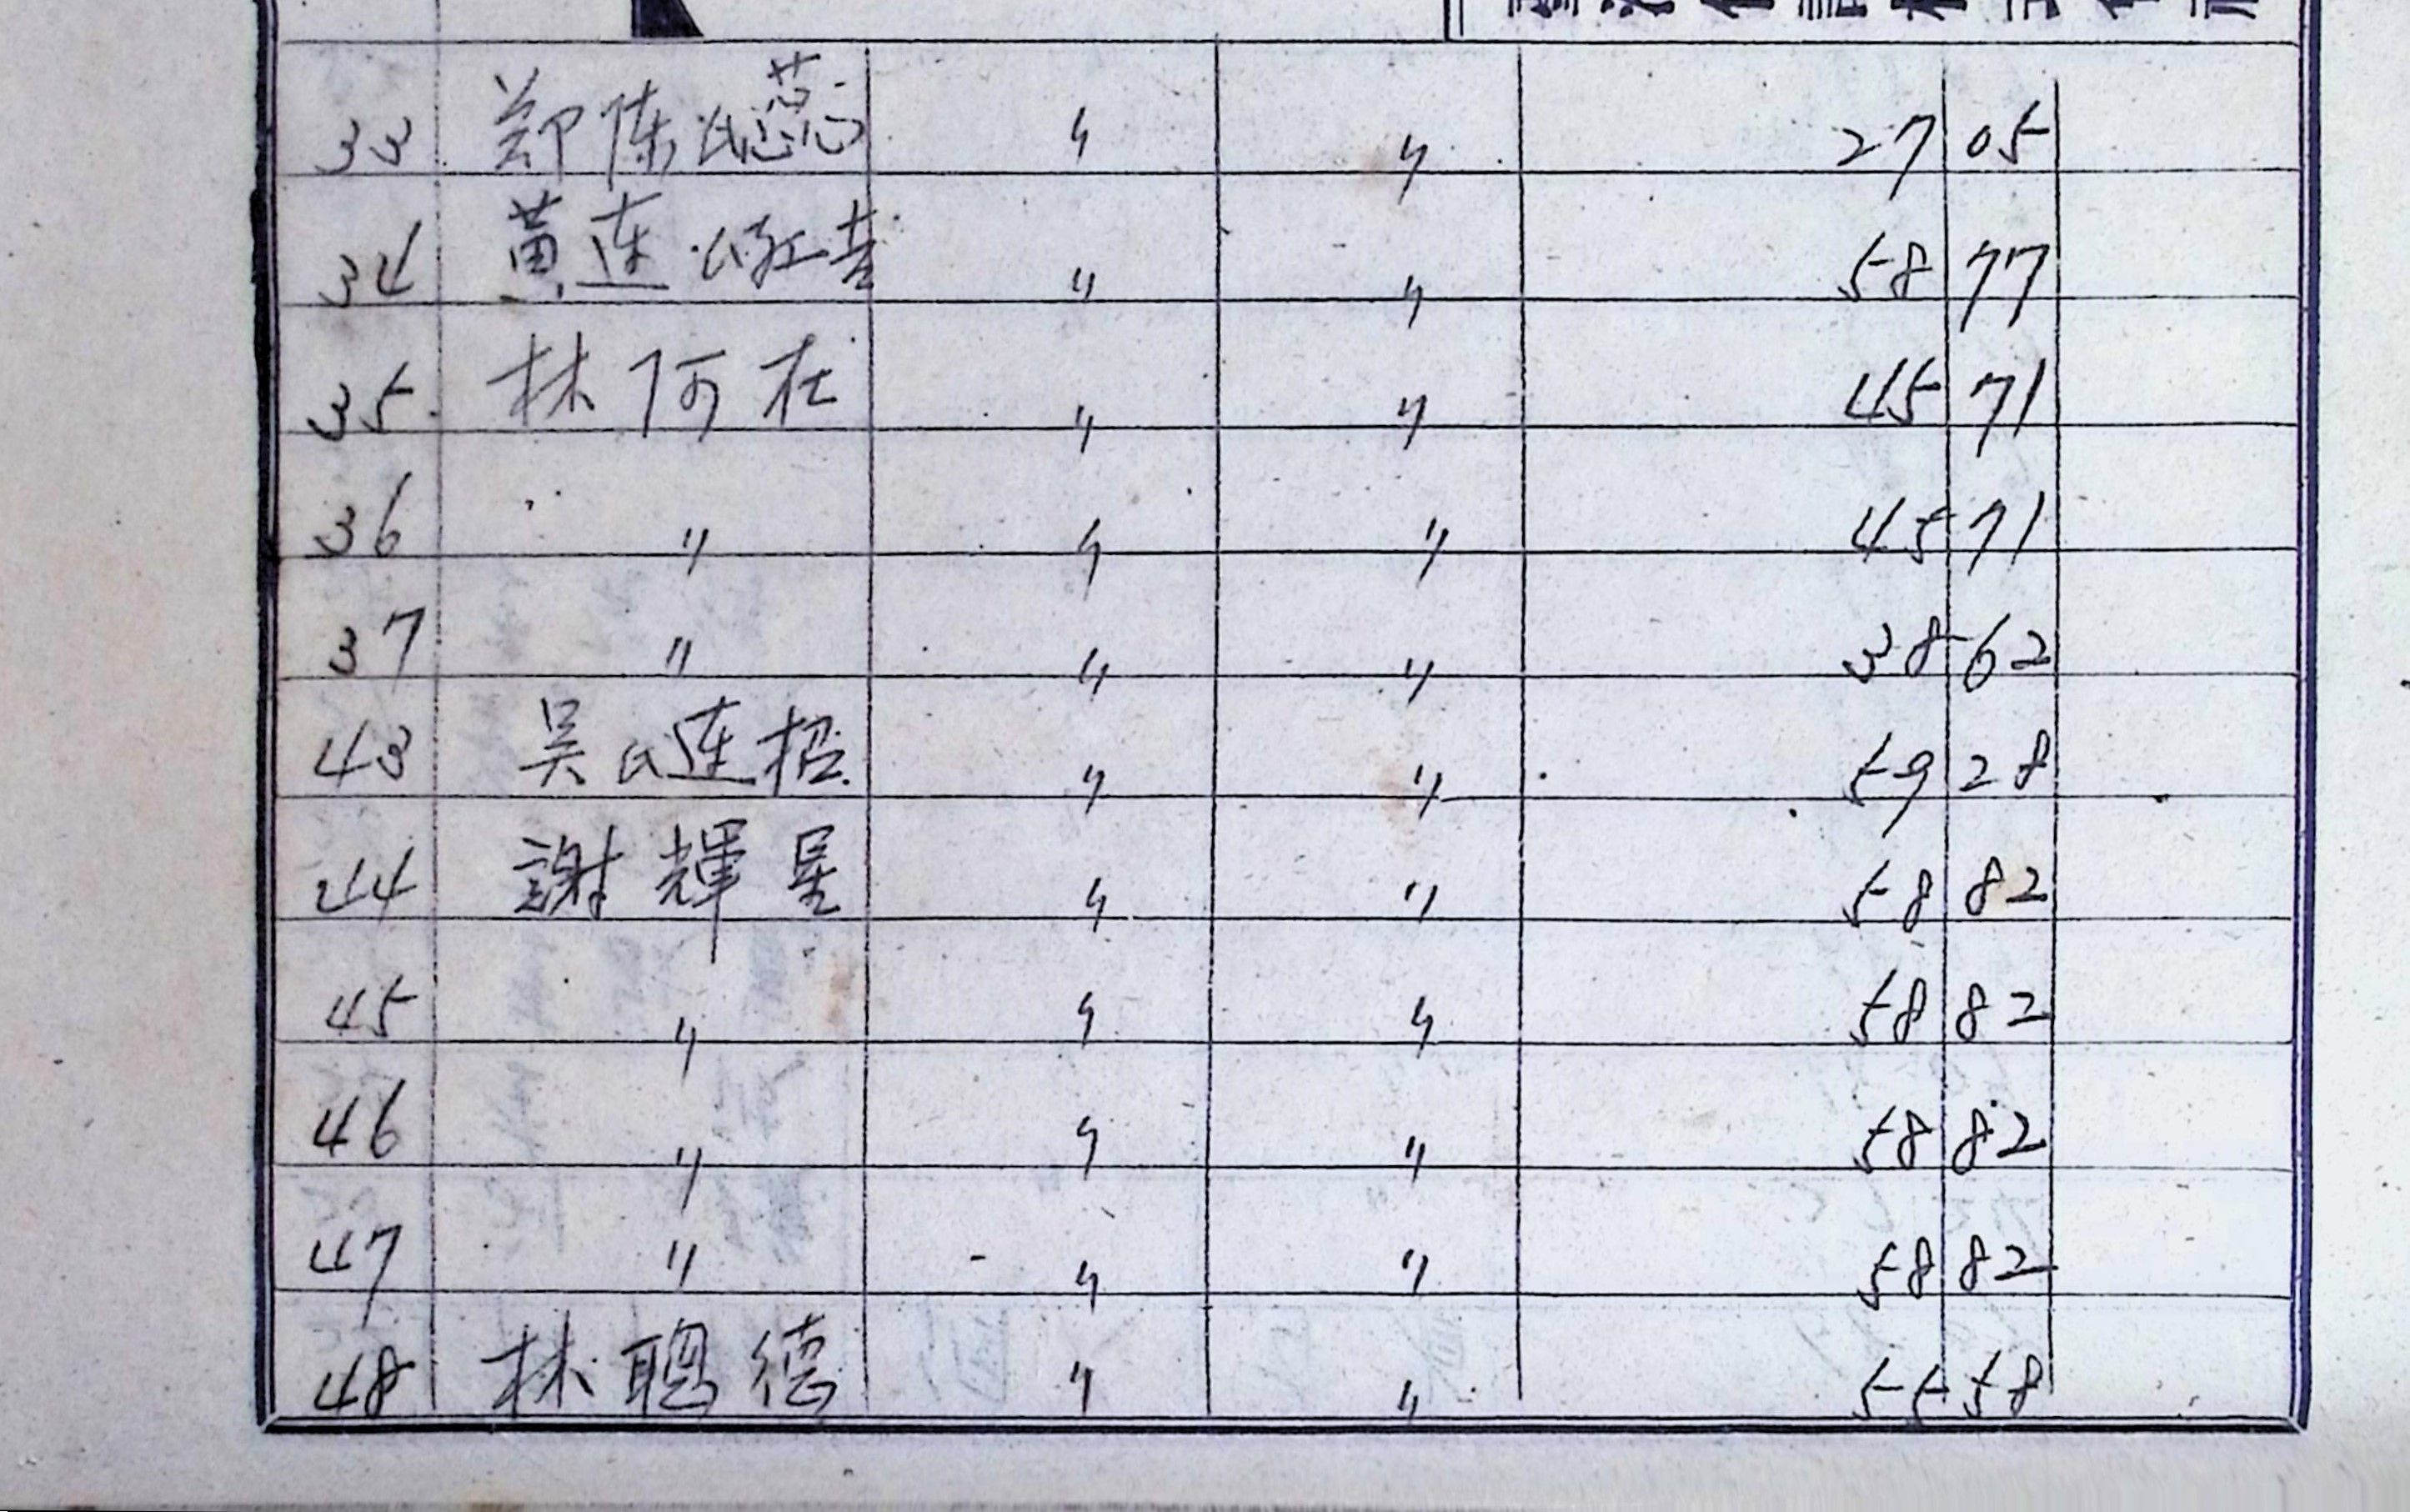 33 郑陈氏蕊 〃 〃 27 05
34 黃連氏紅杏 〃 〃 58 77
35 林阿在 〃 〃 45 71
36 〃 〃 〃 45 71
37 〃 〃 〃 38 62
43 吳氏連招 〃 〃 59 28
44 謝輝星 〃 〃 58 82
45 〃 〃 〃 58 82
46 〃 〃 〃 58 82
47 〃 〃 〃 58 82
48 林聰德 〃 〃 55 58